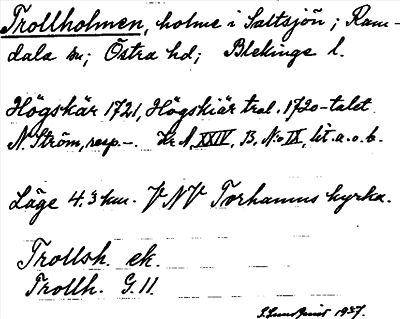 Trollholmen, holme i Saltsjön; Ram-
dala sn; Östra hd; Blekinge l.
Högskär 1721, Högskiär tral. 1720-talet
N. Ström, resp -. Kr A, XXIV, B, N:o IX, lit. a. o. b.
Läge 4.3 km. VNV Torhamns kyrka.
Trollsh. ek.
Trollh. G.11.
S. Lundquist 1937.